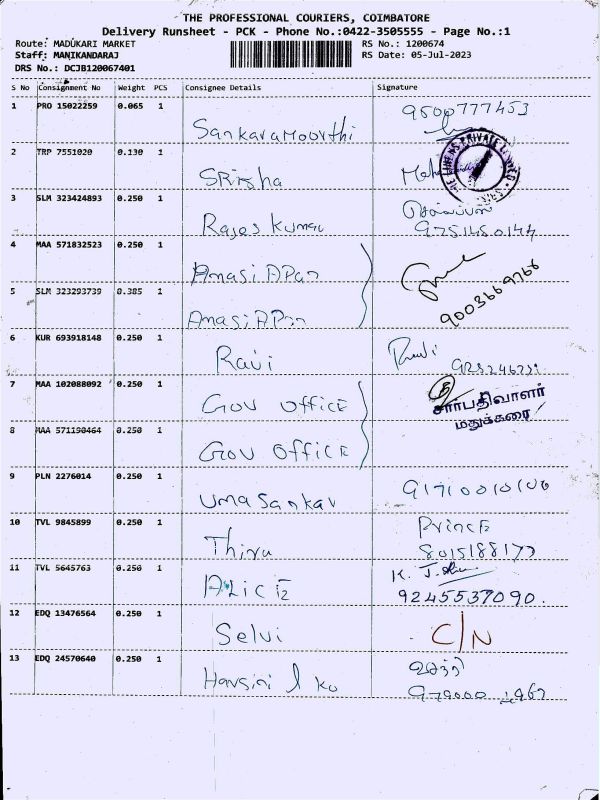 THE PROFESSIONAL COURIERS, COIMBATORE
Delivery Runsheet - PCK - Phone No.:0422-3505555 - Page No.:1
Route: MADUKARI MARKET RS No.: 1200674
Staff: MANIKANDARAJ RS Date: 05-Jul-2023
DRS No.: DCJB120067401
S No Consignment No Weight PCS Consignee Details Signature
1 PRO 15022259 0.065 1 Sankaramoorthi 9500777453
2 TRP 7551020 0.130 1 SRisha
3 SLM 323424893 0.250 1 Rajes Kumar 9751450144
4 MAA 571832523 0.250 1 AmasiAPan
5 SLM 323293739 0.385 1 AmasiAPan 9003669768
6 KUR 693918148 0.250 1 Ravi
7 MAA 102088092 0.250 1 GOV OFFICE சார்பதிவாளர்
மதுக்கரை
8 MAA 571190464 0.250 1 GOV OFFICE
9 PLN 2276014 0.250 1 Umasankar
10 TVL 9845899 0.250 1 Thiru Prince
8015188177
11 TVL 5645763 0.250 1 ALICE K. J.
9245537090.
12 EDQ 13476564 0.250 1 Selvi C/N
13 EDQ 24570640 0.250 1